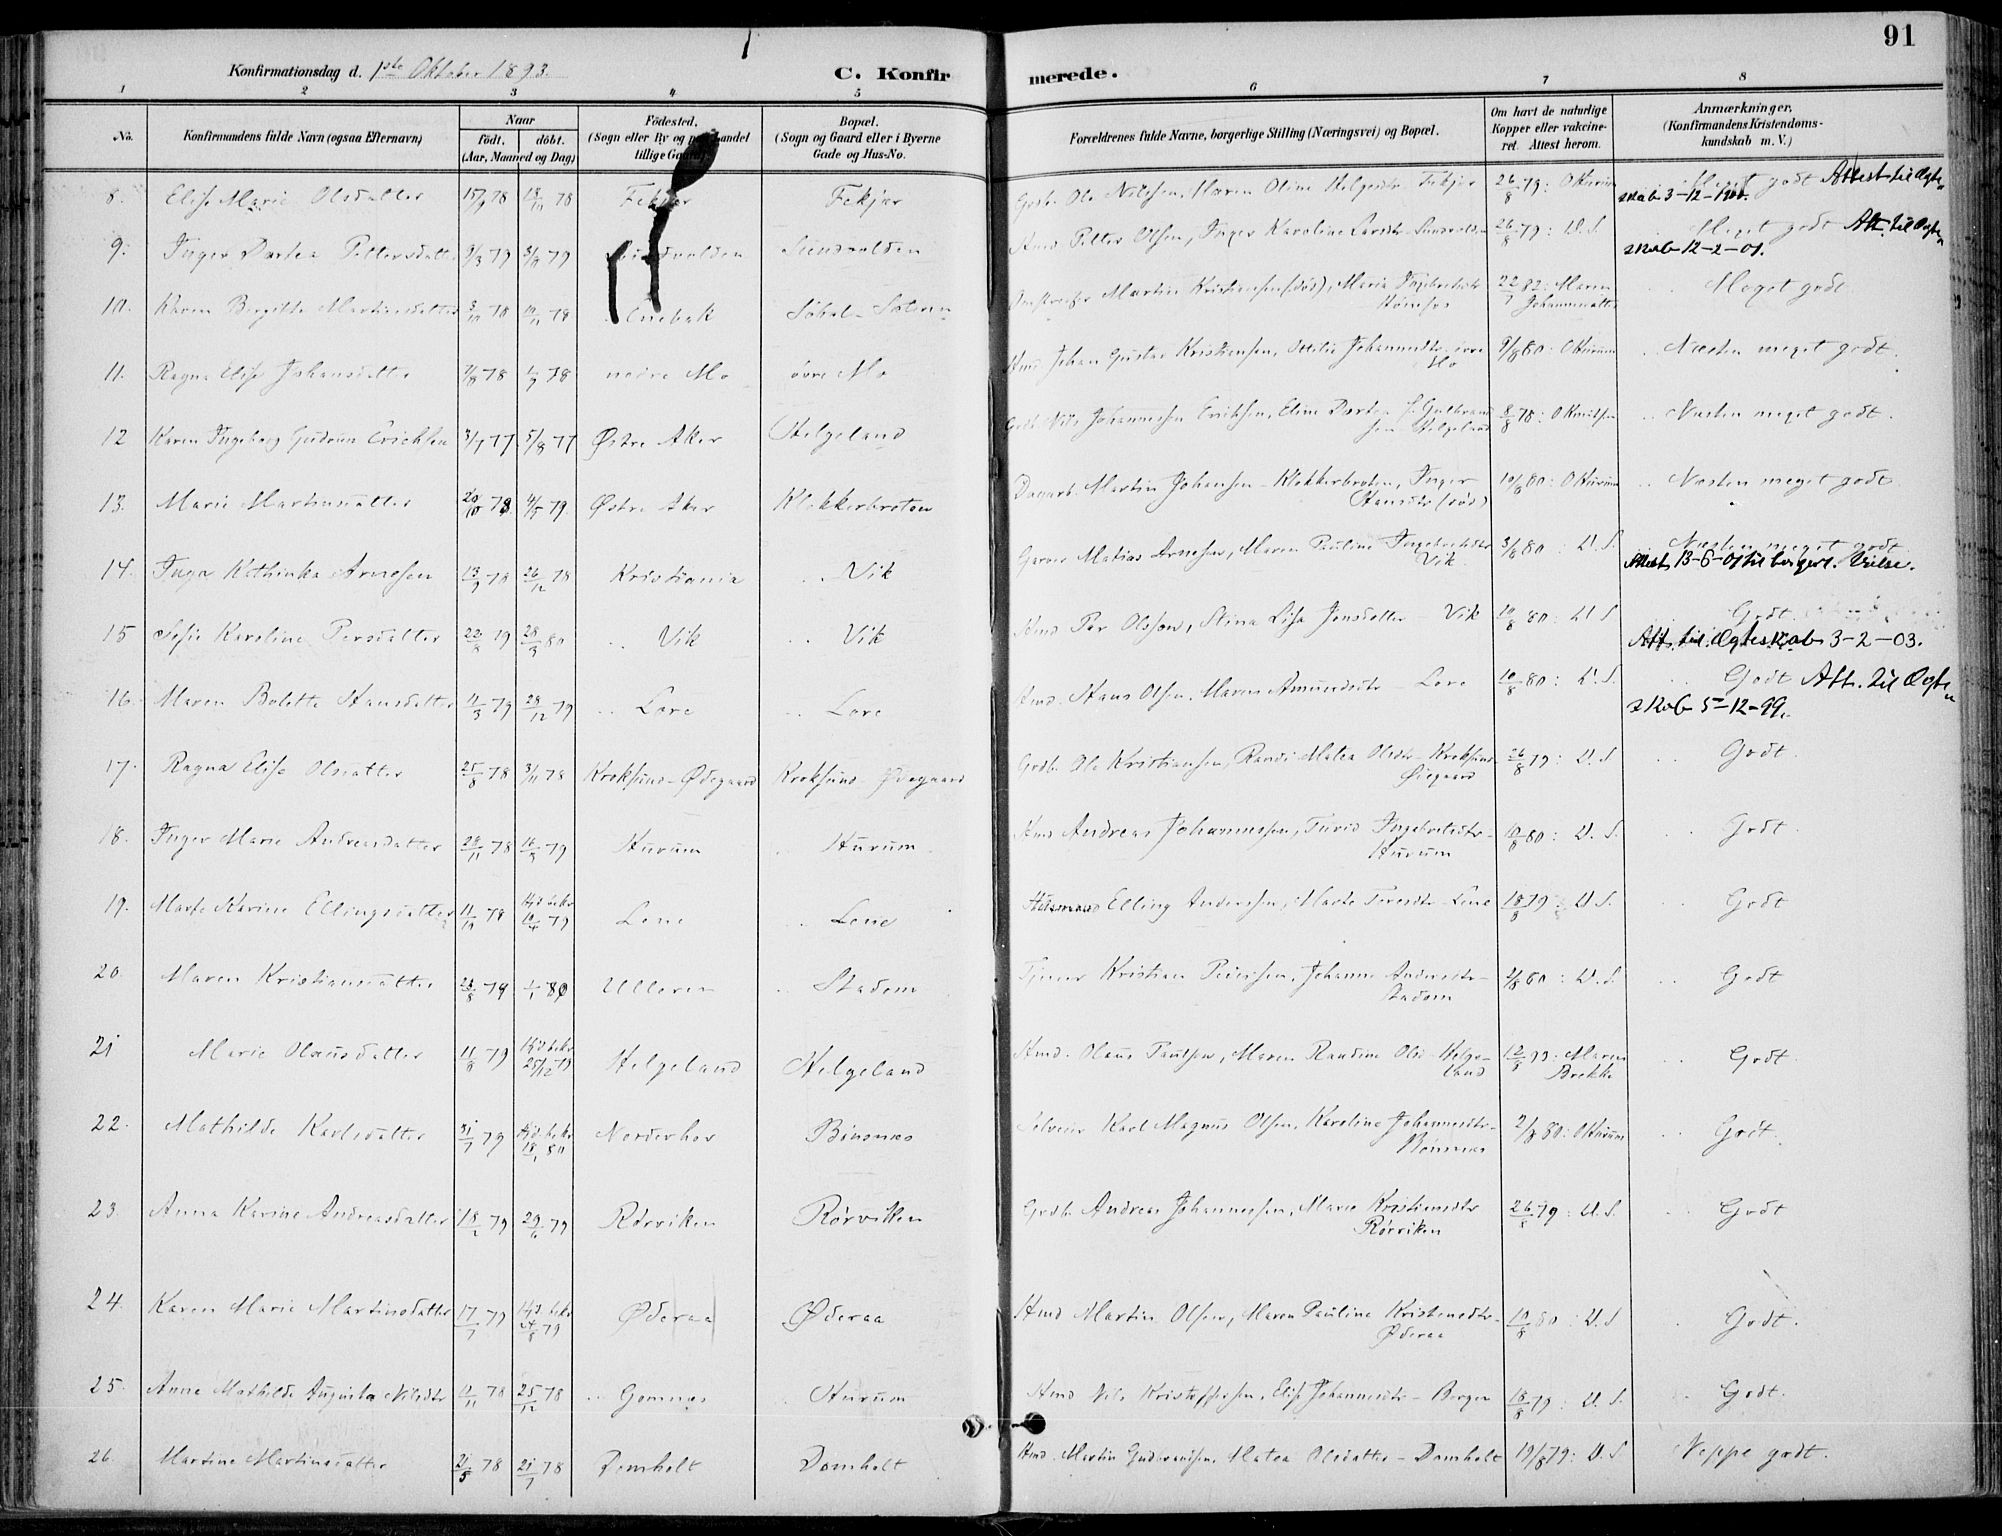 91
Konfirmationsdag d. 1ste Oktober 1893.
C. Konfirmerede.
1 2 3 4 5 6 7 8
No. Konfirmandens fulde Navn (ogsaa Efternavn) Naar Födt. döbt. (Aar, Maaned og Dag) Födested. (Sogn eller By og paa Landet tillige Gaard). Bopæl. (Sogn og Gaard eller i Byerne Gade og Hus-No. Forældrenes fulde Navne, borgerlige Stilling (Næringsvei) og Bopæl. Om havt de naturlige Kopper eller vakcineret. Attest herom. Anmærkninger. (Konfirmandens Kristendomskundskab m. V.)
8. Elise Marie Olsdatter 78 78 Fekjær Fekjær Grdb. Ole Nilsen, Maren Oline Helgesdtr Fekjær 26/8 79: O Hurum Meget godt Attest til Ægteskab 3-12-1900.
9. Inger Dortea Pettersdatter 9/3 79 79 Sundvolden Sundvolden Hmd Petter Olsen, Inger Karoline Larsdtr Sundvolden 26/8 79: D.S. Meget godt Att. til Ægteskab 12-2-01.
10. Karen Birgitte Martinsdatter 78 78 Enebak Martin Kristiansen (död), Maria Ingebretsdtr 22/7 82: Maren Johannesdatter Meget godt
11. Ragna Elise Johansdatter 78 78 nedre Mo övre Mo Hmd Johan Gustav Kristiansen, Ottilie Johannesdtr övre Mo 9/8 80: O Hurum Næsten meget godt.
12 Karen Ingeborg Gudrun Erichsen 3/7 77 5/8 77 Østre Aker Helgeland Grdb. Nils Johannessen Eriksen, Eline Dortea f. Gulbrandsen Helgeland 8/8 78: O Knutsen Næsten meget godt.
13. Marie Martinsdatter 20/10 78. 79. Østre Aker Klokkerbroten Dagarb. Martin Johansen Klokkerbroten, Inger Hansdtr (död) 10/8 80: O Hurum Næsten meget godt
14. Inga Kathinka Arnesen 13/9 78 26/12 78 Kristiania Vik Garver Matias Arnesen, Maren Pauline Ingebretsdtr Vik. 3/8 80: D.S. Næsten meget godt Attest 13-6-07 til borgerl. Vielse.
15 Sofie Karoline Persdatter 79 28/3 80 Vik Vik Hmd Per Olsson, Stina Lisa Jonsdatter - Vik 10/8 80: D S Godt. Att. til Ægteskab 3-2-03.
16. Maren Bolette Hansdatter 11/3 79 28/12 79 Lore Lore Hmd. Hans Olsen, Maren Amundsdtr - Lore 10/8 80: D.S. Godt Att. til Ægteskab 5-12-99.
17. Ragna Elise Olsdatter 25/8 78 3/11 78 Kroksund-Ødegaard Kroksund-Ødegaard Grdb. Ole Kristiansen, Randi Matea Olsdtr-Kroksund Ødegaard 26/8 79: D.S Godt.
18. Inger Marie Andreasdatter 78 79 Hurum Hurum Hmd Andreas Johannessen, Turid Ingebretsdtr- Hurum 10/8 80: D.S. Godt.
19. Marte Karine Ellingsdatter 11/10 78 79 Lene Lene Husmand Elling Andersen, Marte Toresdtr-Lene 18/8 79: D S. Godt
20. Maren Kristiansdatter 79 1/1 80 Ulleren Stadem Kristian Pedersen, Johanne Andersdtr- Stadem 80: D.S. Godt
21 Marie Olausdatter 11/8 79 Hjd bekr 25/12 79 Helgeland Helgeland Hmd. Olaus Paulsen, Maren Randine Olsd-Helgeland Maren Brekke Godt.
22. Mathilde Karlsdatter 31/7 79 Hjd bekr 18/1 80 Norderhov Bönsnes Selveier Karl Magnus Olsen. Karoline Johannesdtr- Bönsnes 80: O Hurum Godt.
23. Anna Karine Andreasdatter 18/2 79 29/6 79 Rörviken Rörviken Grdb. Andreas Johannessen, Marie Kristiansdtr Rörviken 26/8 79: D.S. Godt
24. Karen Marie Martinsdatter 17/7 79 Hjd bekr 79 Øderaa Øderaa Hmd Martin Olsen, Maren Pauline Kristensdtr- Øderaa 10/8 80: D.S Godt.
25. Anne Mathilde Augusta Nilsdtr 78 25/12 78 Gomnes Hurum Hmd Nils Kristoffersen, Elise Johannesdtr - Borgen 18/8 79: D.S. Godt.
26. Martine Martinsdatter 21/5 78 21/7 78 Domholt Domholt Hmd. Martin Gudbrandsen, Matea Olsdatter - Domholt 19/8 79: D.S Neppe godt.